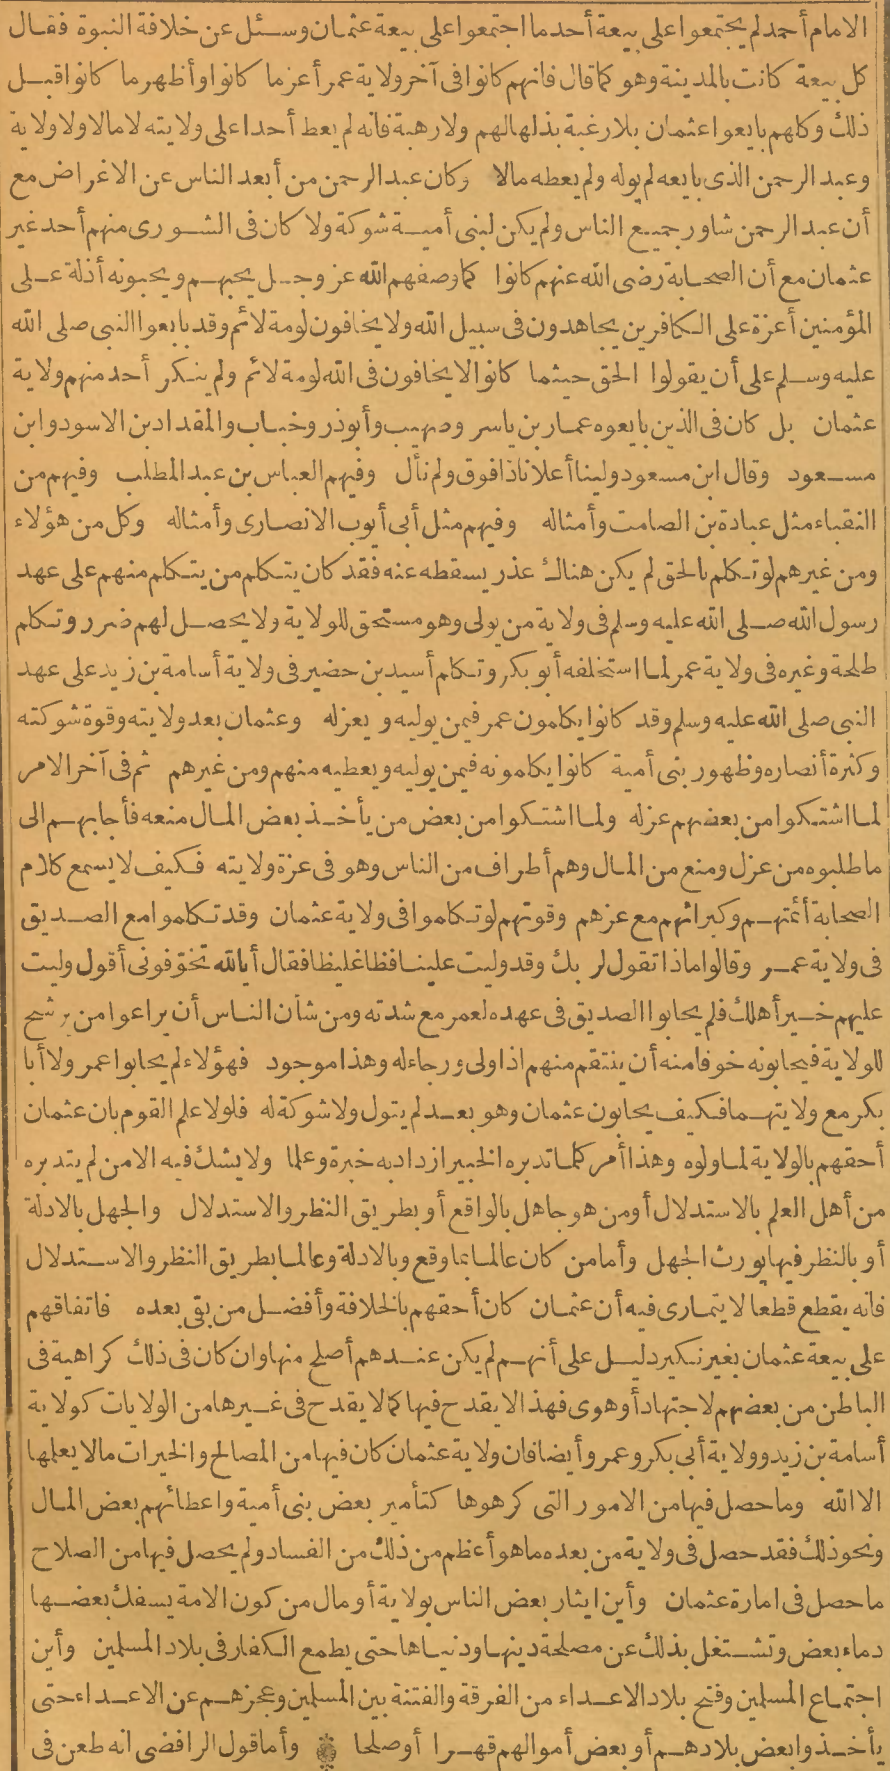 الامام أحمد لم يجتمعوا على بيعة أحد ما اجتمعوا على بيعة عثمان وسئل عن خلافة النبوة فقال
كل بيعة كانت بالمدينة وهو كما قال فانهم كانوا فى آخر ولاية عمر أعز ما كانوا وأظهر ما كانوا قبل
ذلك وكلهم بايعوا عثمان بلا رغبة بذلها لهم ولا رهبة فانه لم يعط أحدا على ولايته لا مالا ولا ولاية
وعبد الرحمن الذى بايعه لم يوله ولم يعطه مالا وكان عبد الرحمن من أبعد الناس عن الاغراض مع
أن عبد الرحمن شاور جميع الناس ولم يكن لبنى أمية شوكة ولا كان فى الشورى منهم أحد غير
عثمان مع أن الصحابة رضى الله عنهم كانوا كما وصفهم الله عز وجل يحبهم ويحبونه أذلة على
المؤمنين أعزة على الكافرين يجاهدون فى سبيل الله ولا يخافون لومة لائم وقد بايعوا النبى صلى الله
عليه وسلم على أن يقولوا الحق حيثما كانوا لا يخافون فى الله لومة لائم ولم ينكر أحد منهم ولاية
عثمان بل كان فى الذين بايعوه عمار بن ياسر وصهيب وأبو ذر وخباب والمقداد بن الاسود وابن
مسعود وقال ابن مسعود ولينا أعلانا ذا فوق ولم نأل وفيهم العباس بن عبد المطلب وفيهم من
النقباء مثل عبادة بن الصامت وأمثاله وفيهم مثل أبى أيوب الانصارى وأمثاله وكل من هؤلاء
ومن غيرهم لو تكلم بالحق لم يكن هناك عذر يسقطه عنه فقد كان يتكلم من يتكلم منهم على عهد
رسول الله صلى الله عليه وسلم فى ولاية من يولى وهو مستحق للولاية ولا يحصل لهم ضرر وتكلم
طلحة وغيره فى ولاية عمر لما استخلفه أبو بكر وتكلم أسيد بن حضير فى ولاية أسامة بن زيد على عهد
النبى صلى الله عليه وسلم وقد كانوا يكلمون عمر فيمن يوليه ويعزله وعثمان بعد ولايته وقوة شوكته
وكثرة أنصاره وظهور بنى أمية كانوا يكلمونه فيمن يوليه ويعطيه منهم ومن غيرهم ثم فى آخر الامر
لما اشتكوا من بعضهم عزله ولما اشتكوا من بعض من يأخذ بعض المال منعه فأجابهم الى
ما طلبوه من عزل ومنع من المال وهم أطراف من الناس وهو فى عزة ولايته فكيف لا يسمع كلام
الصحابة أئمتهم وكبرائهم مع عزهم وقوتهم لو تكلموا فى ولاية عثمان وقد تكلموا مع الصديق
فى ولاية عمر وقالوا ماذا تقول لربك وقد وليت علينا فظا غليظا فقال أبالله تخوفونى أقول وليت
عليهم خير أهلك فلم يحابوا الصديق فى عهده لعمر مع شدته ومن شأن الناس أن يراعوا من يرشح
للولاية فيحابونه خوفا منه أن ينتقم منهم اذا ولى ورجاء له وهذا موجود فهؤلاء لم يحابوا عمر ولا أبا
بكر مع ولايتهما فكيف يحابون عثمان وهو بعد لم يتول ولا شوكة له فلولا علم القوم بان عثمان
أحقهم بالولاية لما ولوه وهذا أمر كلما تدبره الخبير ازداد به خبرة وعلما ولا يشك فيه الا من لم يتدبره
من أهل العلم بالاستدلال أو من هو جاهل بالواقع أو بطريق النظر والاستدلال والجهل بالادلة
أو بالنظر فيها يورث الجهل وأما من كان عالما بما وقع وبالادلة وعالما بطريق النظر والاستدلال
فانه يقطع قطعا لا يتمارى فيه أن عثمان كان أحقهم بالخلافة وأفضل من بقى بعده فاتفاقهم
على بيعة عثمان بغير نكير دليل على أنهم لم يكن عندهم أصلح منها وان كان فى ذلك كراهية فى
الباطن من بعضهم لاجتهاد أو هوى فهذا لا يقدح فيها كما لا يقدح فى غيرها من الولايات كولاية
أسامة بن زيد وولاية أبى بكر وعمر وأيضا فان ولاية عثمان كان فيها من المصالح والخيرات ما لا يعلمها
الا الله وما حصل فيها من الامور التى كرهوها كتأمير بعض بنى أمية واعطائهم بعض المال
ونحو ذلك فقد حصل فى ولاية من بعده ما هو أعظم من ذلك من الفساد ولم يحصل فيها من الصلاح
ما حصل فى امارة عثمان وأين ايثار بعض الناس بولاية أو مال من كون الامة يسفك بعضها
دماء بعض وتشتغل بذلك عن مصلحة دينها ودنياها حتى يطمع الكفار فى بلاد المسلمين وأين
اجتماع المسلمين وفتح بلاد الاعداء من الفرقة والفتنة بين المسلمين وعجزهم عن الاعداء حتى
يأخذوا بعض بلادهم أو بعض أموالهم قهرا أو صلحا وأما قول الرافضى انه طعن فى